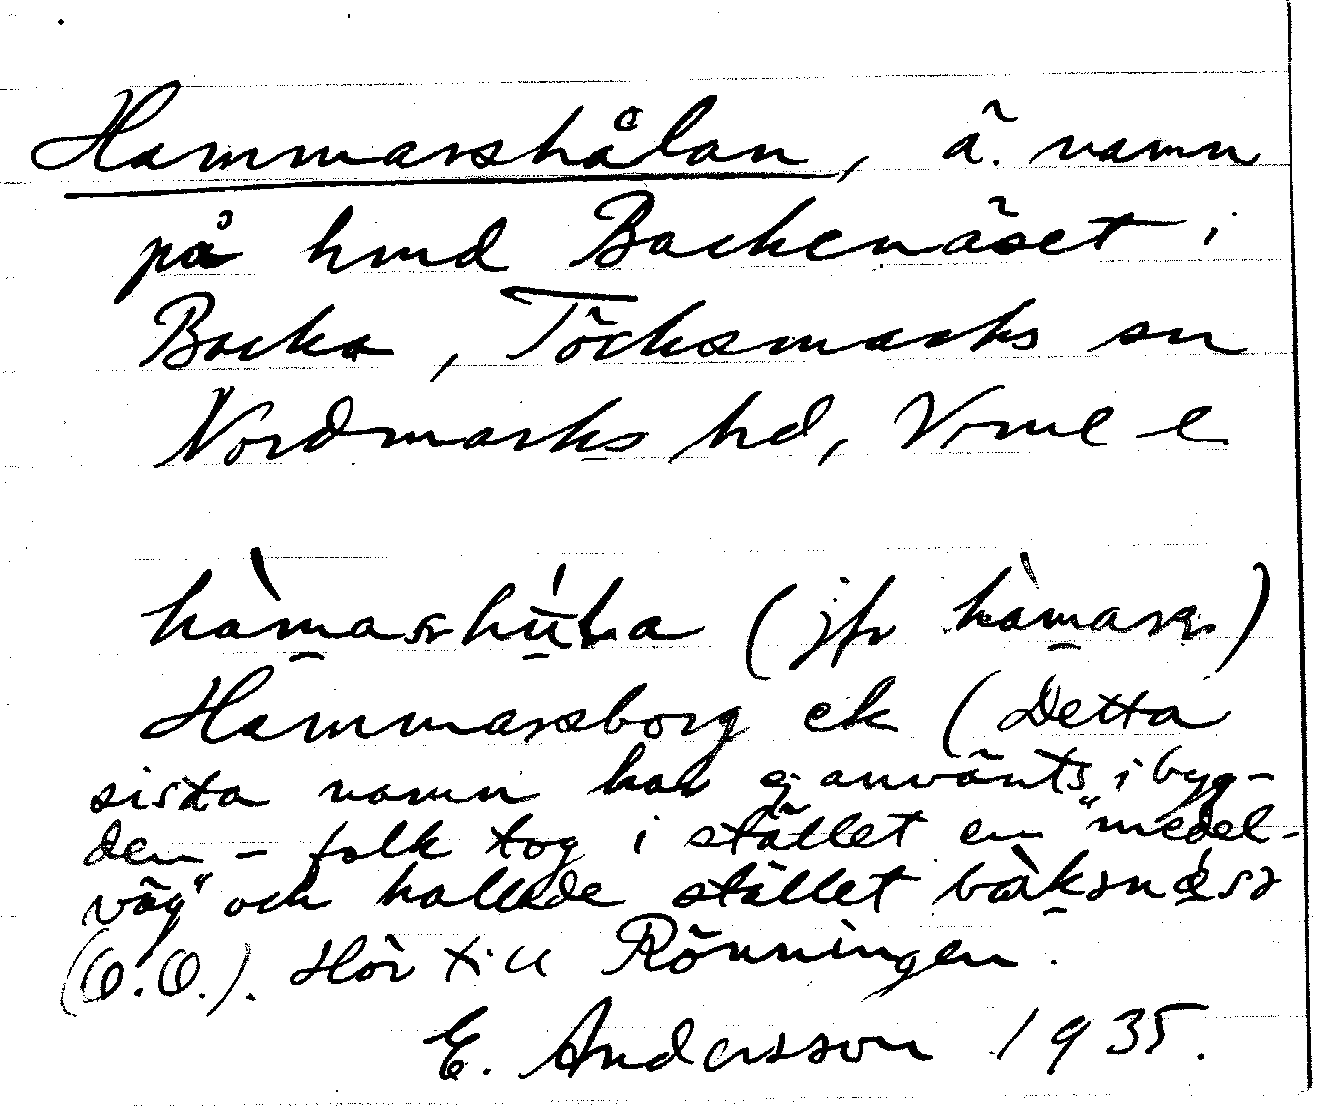 Hammarshålan, ä. namn
på hmd Backenäset i
Backa, Töcksmarks sn
Nordmarks hd, Vrml l.
(jfr hàmarn)
Hammarsborg ek (Detta
sista namn har ej använts i byg-
den - folk tog i stället en "medel-
väg" och kallade stället
(O.O.). Hör till Rönningen.
E. Andersson 1935.